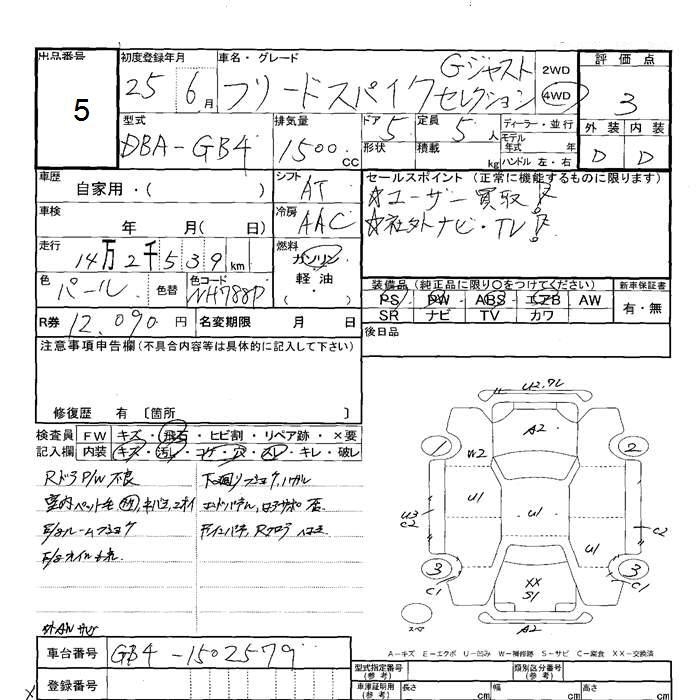 出品番号
5
初度登録年月
25 6月
車名・グレード
フリードスパイク Gジャストセレクション
2WD
4WD
評価点
3
外装 内装
D D
型式
DBA-GB4
排気量
1500cc
ドア 5
形状
定員 5人
積載 kg
ディーラー・並行
モデル年式 年式
ハンドル 左・右
車歴
自家用・( )
シフト
AT
セールスポイント(正常に機能するものに限ります)
☆ユーザー買取!
☆社外ナビ・TV!
車検
年 月( 日)
冷房
AAC
走行
14万2千539km
燃料
ガソリン
軽油
( )
色
パール
色替
色コード
NH788P
装備品(純正品に限り○をつけてください)
新車保証書
PS PW ABS エアB AW
SR ナビ TV カワ
有・無
R券 12,090円
名変期限 月 日
後日品
注意事項申告欄(不具合内容等は具体的に記入して下さい)
修復歴 有〔箇所 〕
検査員記入欄
FW キズ・飛石・ヒビ割・リペア跡・×要
内装 キズ・汚レ・コゲ・穴・スレ・キレ・破レ
RドラP/W不良
下回りフショク,ハガレ
E/gルームフショク
U2.フレ
A2
1
2
W2
U1
U3
C2
U1
U1
C2
3
C1
XX
S1
3
C1
スペ
A2
A-キズ E-エクボ U-凹み W-補修跡 S-サビ C-腐食 XX-交換済
車台番号
GB4-1502579
登録番号
型式指定番号(参考)
類別区分番号(参考)
車庫証明用(参考)
長さ cm
幅 cm
高さ cm